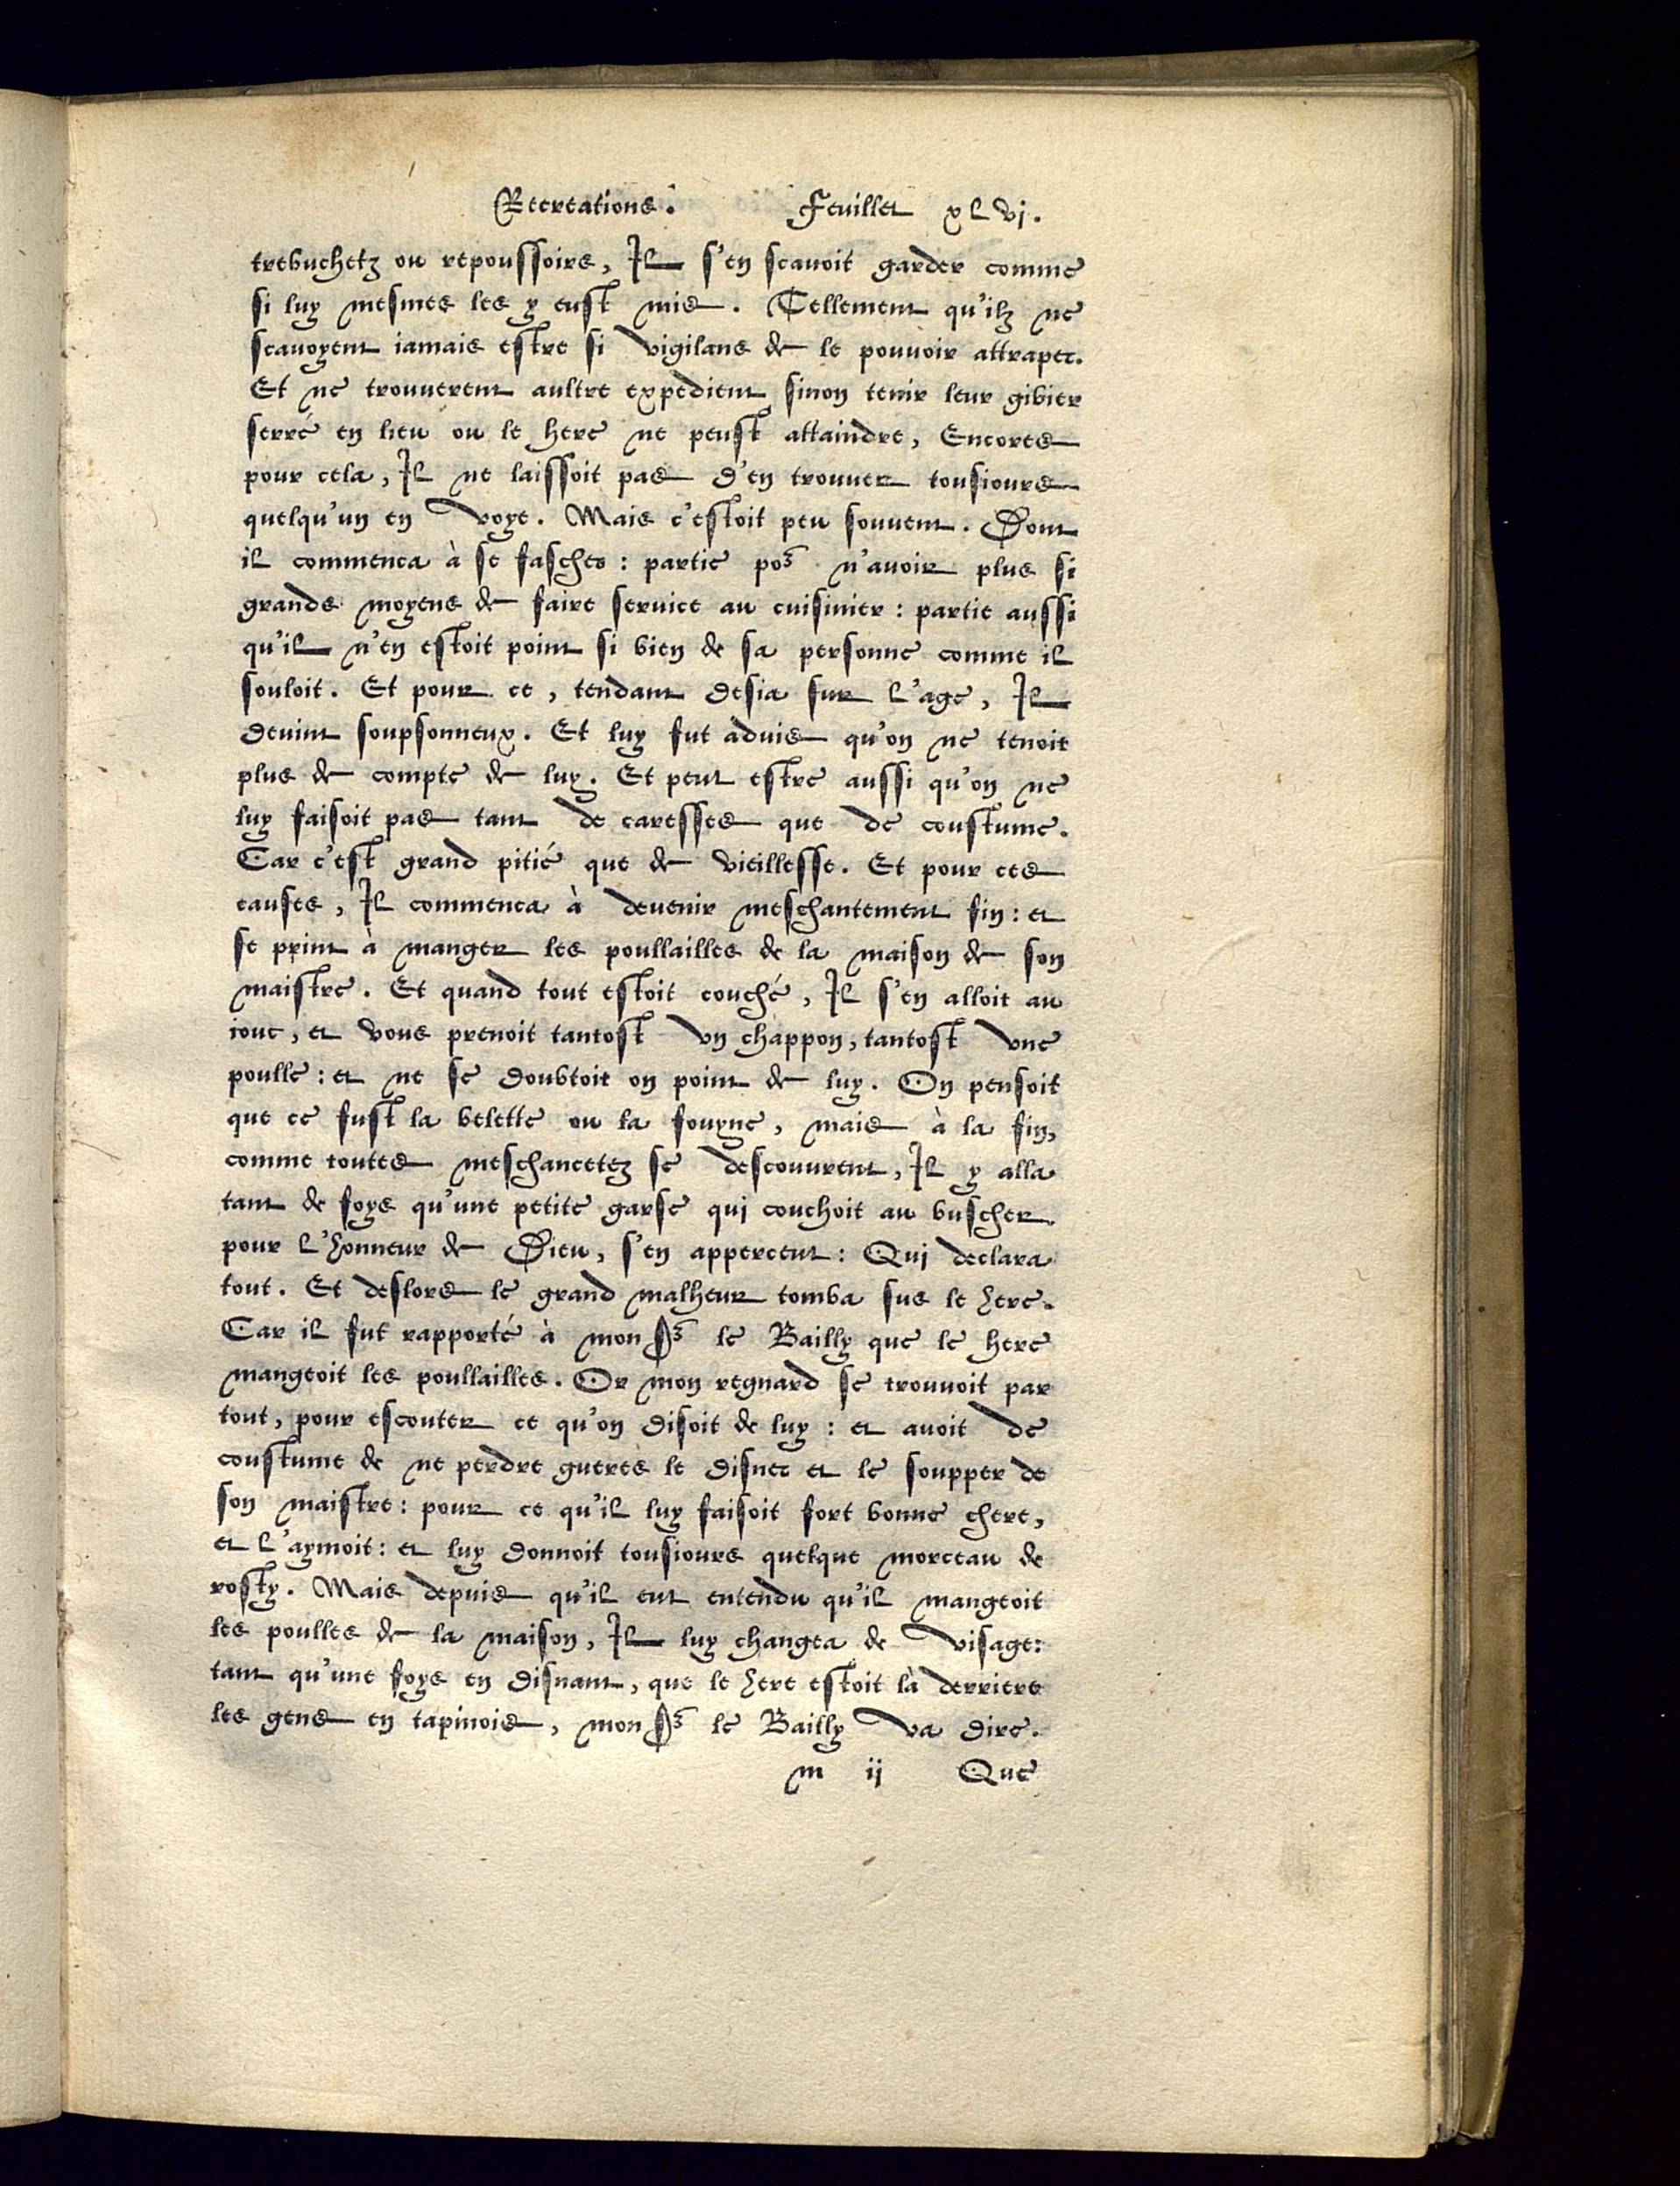 Recreations. Feuillet xlvj.
trebuchetz ou repoussoirs, Il s'en scauoit garder comme
si luy mesmes les y eust mis. Tellement qu'ilz ne
scauoyent iamais estre si vigilans de le pouuoir attraper.
Et ne trouuerent aultre expedient sinon tenir leur gibier
serré en lieu ou le here ne peust attaindre, Encores
pour cela, Il ne laissoit pas d'en trouuer tousiours
quelqu'un en voye. Mais c'estoit peu souuent. Dont
il commenca à se fascher : partie po⁹ n'auoir plus si
grands moyens de faire seruice au cuisinier : partie aussi
qu'il n'en estoit point si bien de sa personne comme il
souloit. Et pour ce, tendant desia sur l'age, Il
deuint soupsonneux. Et luy fut aduis qu'on ne tenoit
plus de compte de luy. Et peut estre aussi qu'on ne
luy faisoit pas tant de caresses que de coustume.
Car c'est grand pitié que de vieillesse. Et pour ces
causes, Il commenca à deuenir meschantement fin : et
se print à manger les poullailles de la maison de son
maistre. Et quand tout estoit couché, Il s'en alloit au
iouc, et vous prenoit tantost vn chappon, tantost vne
poulle : et ne se doubtoit on point de luy. On pensoit
que ce fust la belette ou la fouyne, mais à la fin,
comme toutes meschancetez se descouurent, Il y alla
tant de foys qu'une petite garse qui couchoit au buscher
pour l'honneur de Dieu, s'en apperceut : Qui declara
tout. Et deslors le grand malheur tomba sus le here.
Car il fut rapporté à mons⁹ le Bailly que le here
mangeoit les poullailles. Or mon regnard se trouuoit par
tout, pour escouter ce qu'on disoit de luy : et auoit de
coustume de ne perdre gueres le disner et le soupper de
son maistre : pour ce qu'il luy faisoit fort bonne chere,
et l'aymoit : et luy donnoit tousiours quelque morceau de
rosty. Mais depuis qu'il eut entendu qu'il mangeoit
les poulles de la maison, Il luy changea de visage :
tant qu'une foys en disnant, que le here estoit là derriere
les gens en tapinois, mons⁹ le Bailly va dire.
m ij Que